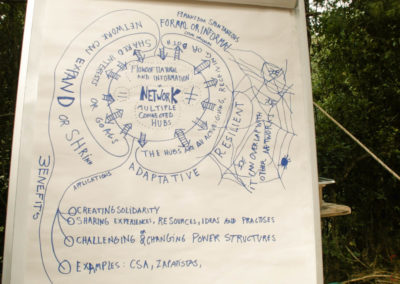 FORMAL OR INFORMAL
NETWORK CAN EXPAND OR SHRINK
SHARED INTERESTS OR GOALS
FLOW OF
AND INFORMATION
NETWORK
MULTIPLE
CONNECTED
HUBS
THE HUBS
GIVING, RECEIVING OR BOTH
RESILIENT
IT CAN OVERLAP WITH
OTHER NETWORKS
ADAPTATIVE
BENEFITS
APPLICATIONS
CREATING SOLIDARITY
SHARING EXPERIENCES, RESOURCES, IDEAS AND PRACTISES
CHALLENGING OR CHANGING POWER STRUCTURES
EXAMPLES: CSA, ZAPATISTAS,